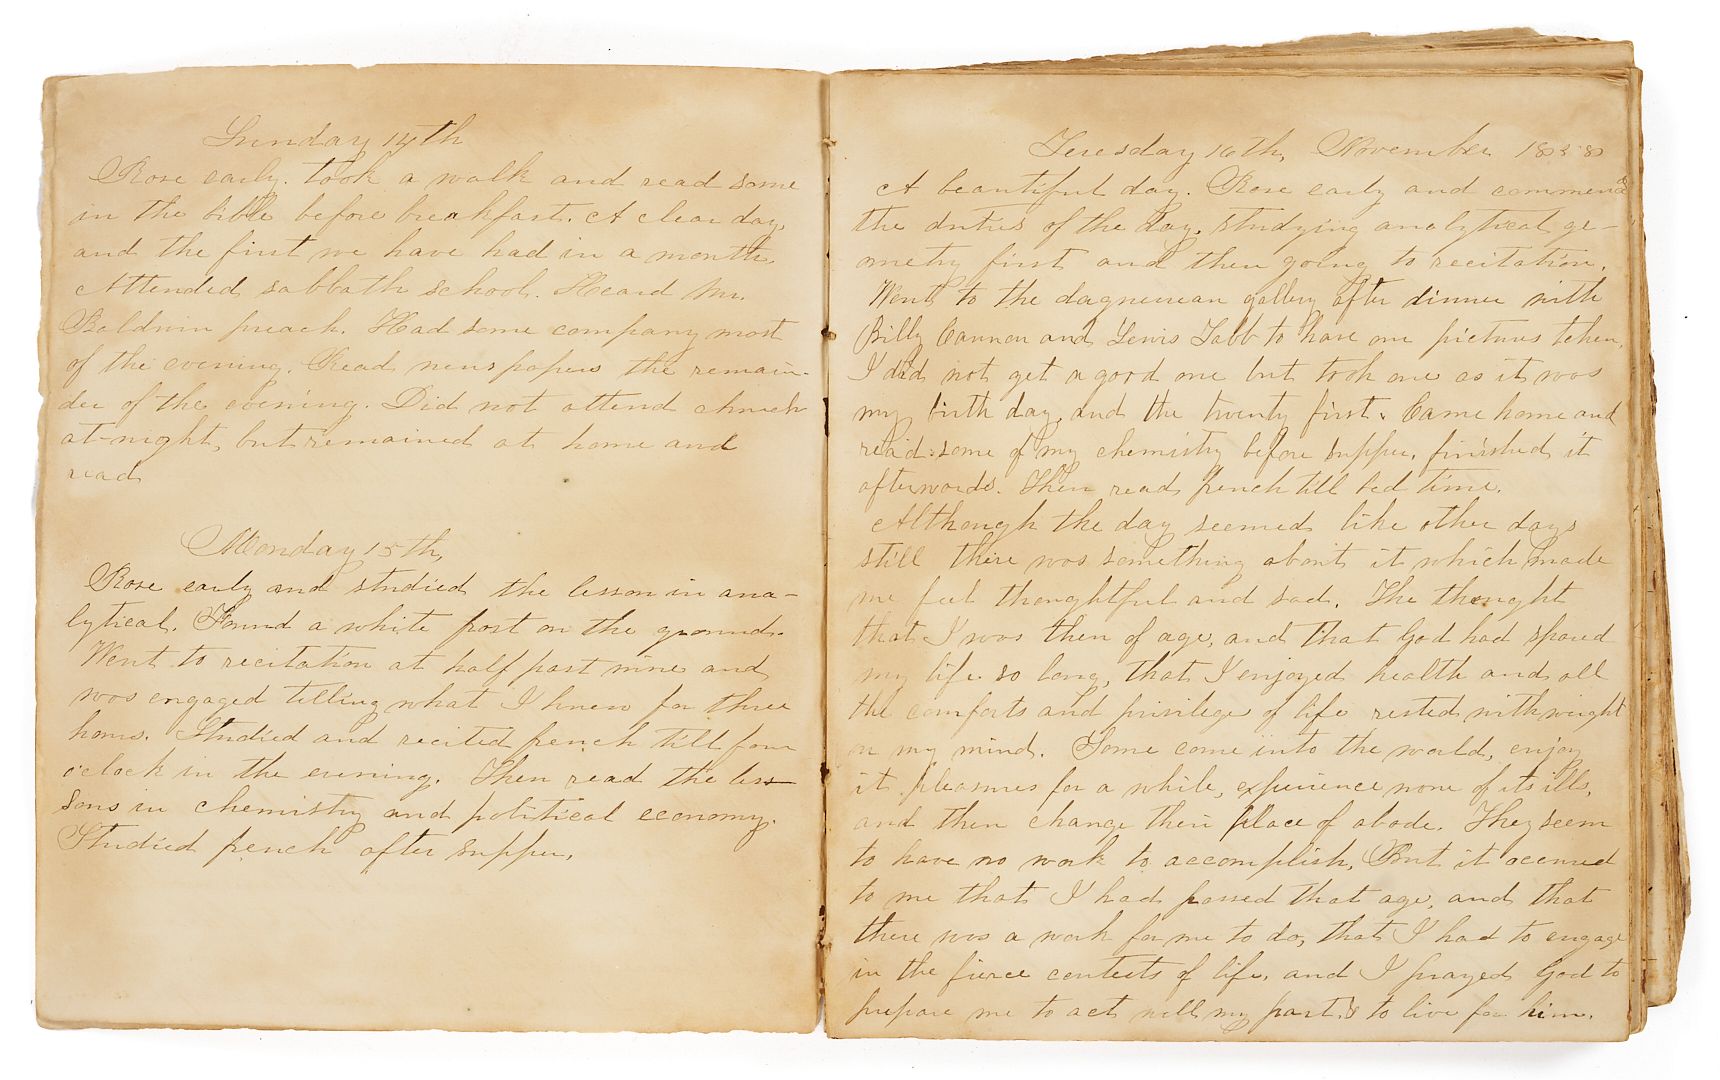 Sunday 14th
Rose early. took a walk and read some
in the bible before breakfast. A clear day,
and the first we have had in a month.
Attended sabbath school. Heard Mr.
Baldwin preach. Had some company most
of the evening. Read newspapers the remain-
der of the evening. Did not attend church
at-night, but remained at home and
read
Monday 15th,
Rose early and studied the lesson in ana-
lytical. Found a white frost on the grounds.
Went to recitation at half past nine and
was engaged telling what I knew for three
hours. Studied and recited french till four
o'clock in the evening. Then read the les-
sons in chemistry and political economy.
Studied french after supper.
Tuesday 16th, November 1858
A beautiful day. Rose early and commenced
the duties of the day, studying analytical ge-
ometry first and then going to recitation.
Went to the daguerrean gallery after dinner with
Billy Cannon and Lewis Tabb to have our pictures taken,
I did not get a good one but took one as it was
my birth day, and the twenty first. Came home and
read some of my chemistry before supper, finished it
afterwards. Then read french till bed time.
Although the day seemed like other days
still there was something about it which made
me feel thoughtful and sad. The thought
that I was then of age, and that God had spared
my life so long, that I enjoyed health and all
the comforts and privileges of life rested with weight
on my mind. Some come into the world, enjoy
it pleasures for a while, experience none of its ills,
and then change their place of abode. They seem
to have no work to accomplish, But it occured
to me that I had passed that age, and that
there was a work for me to do, that I had to engage
in the fierce contests of life, and I prayed God to
prepare me to act well my part & to live for him.